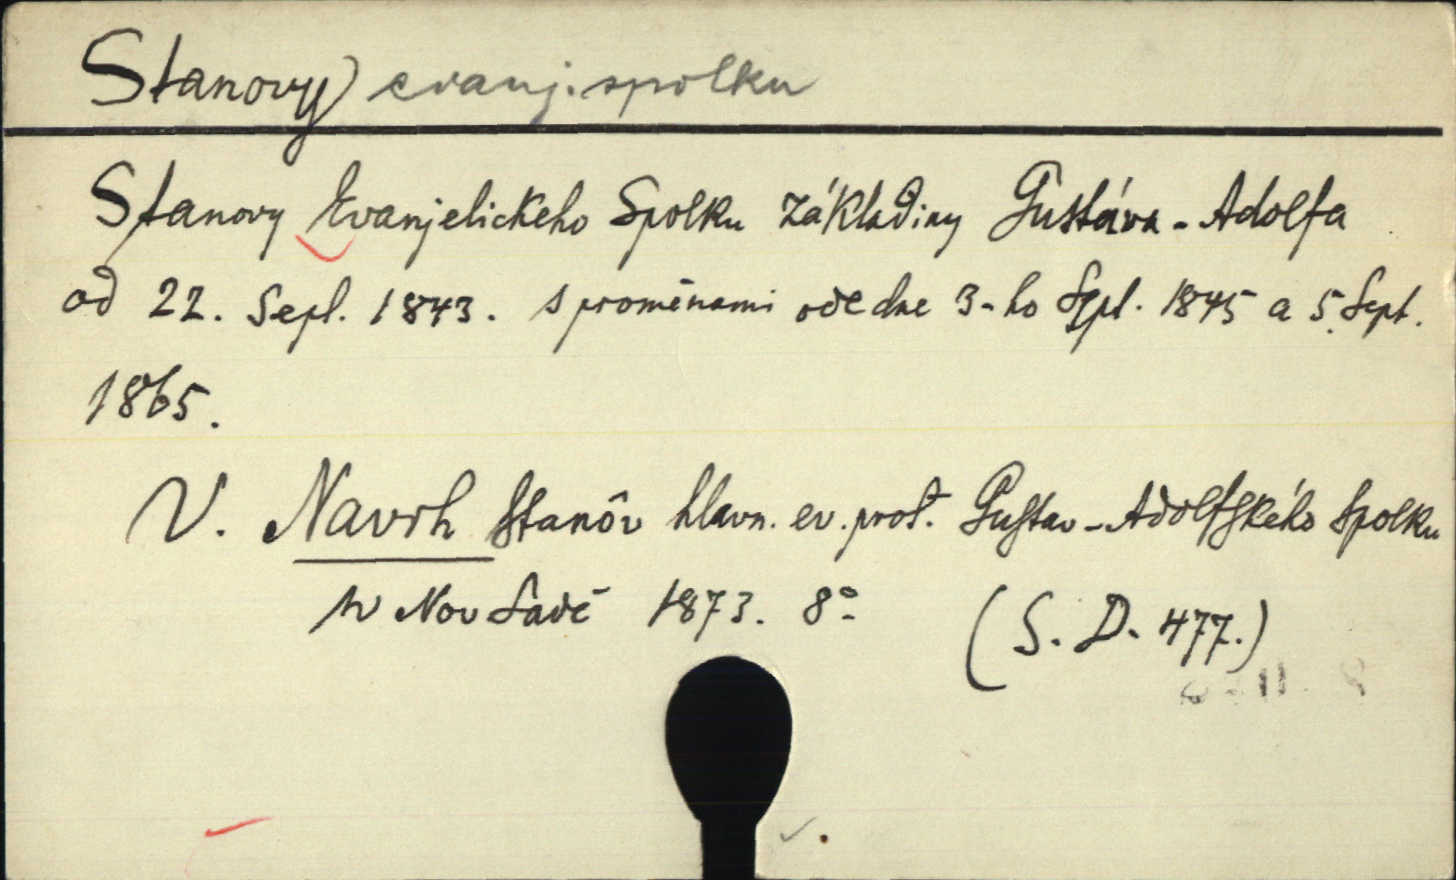 Stanovy evanj. spolku
Stanovy Evanjelickeho Spolku základiny Gustáva - Adolfa
od 22. Sept. 1843. s proměnami ode dne 3-ho Sept. 1845 a 5. Sept.
1865.
V. Navrh stanôv hlavn. ev. prot. Gustav-Adolfského Spolku
w Nov Sadě 1873. 8°
(S. D. 477.)